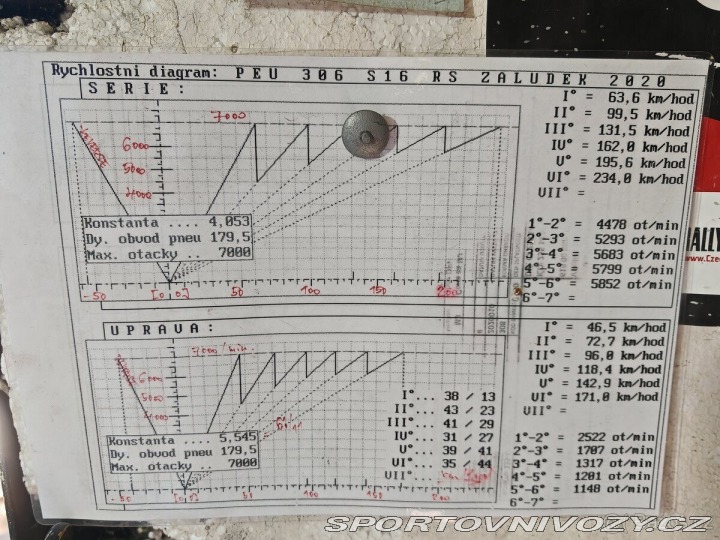 Rychlostni diagram: PEU 306 S16 RS ZALUDEK 2020
SERIE:
7000
6000
5000
4000
Konstanta .... 4,053
Dy. obvod pneu 179,5
Max. otacky .. 7000
-50 [0,0] 50 100 150 200
I° = 63,6 km/hod
II° = 99,5 km/hod
III° = 131,5 km/hod
IV° = 162,0 km/hod
V° = 195,6 km/hod
VI° = 234,0 km/hod
VII° =
1°-2° = 4478 ot/min
2°-3° = 5293 ot/min
3°-4° = 5683 ot/min
4°-5° = 5799 ot/min
5°-6° = 5852 ot/min
6°-7° =
RALLY
www.Cze
UPRAVA:
7000/min.
6000
5000
4000
Konstanta .... 5,545
Dy. obvod pneu 179,5
Max. otacky .. 7000
-50 [0,0] 50 100 150 200
I°... 38 / 13
II°... 43 / 23
III°... 41 / 29
IV°... 31 / 27
V°... 39 / 41
VI°... 35 / 44
VII°..
I° = 46,5 km/hod
II° = 72,7 km/hod
III° = 96,0 km/hod
IV° = 118,4 km/hod
V° = 142,9 km/hod
VI° = 171,0 km/hod
VII° =
1°-2° = 2522 ot/min
2°-3° = 1707 ot/min
3°-4° = 1317 ot/min
4°-5° = 1201 ot/min
5°-6° = 1148 ot/min
6°-7° =
SPORTOVNIVOZY.CZ